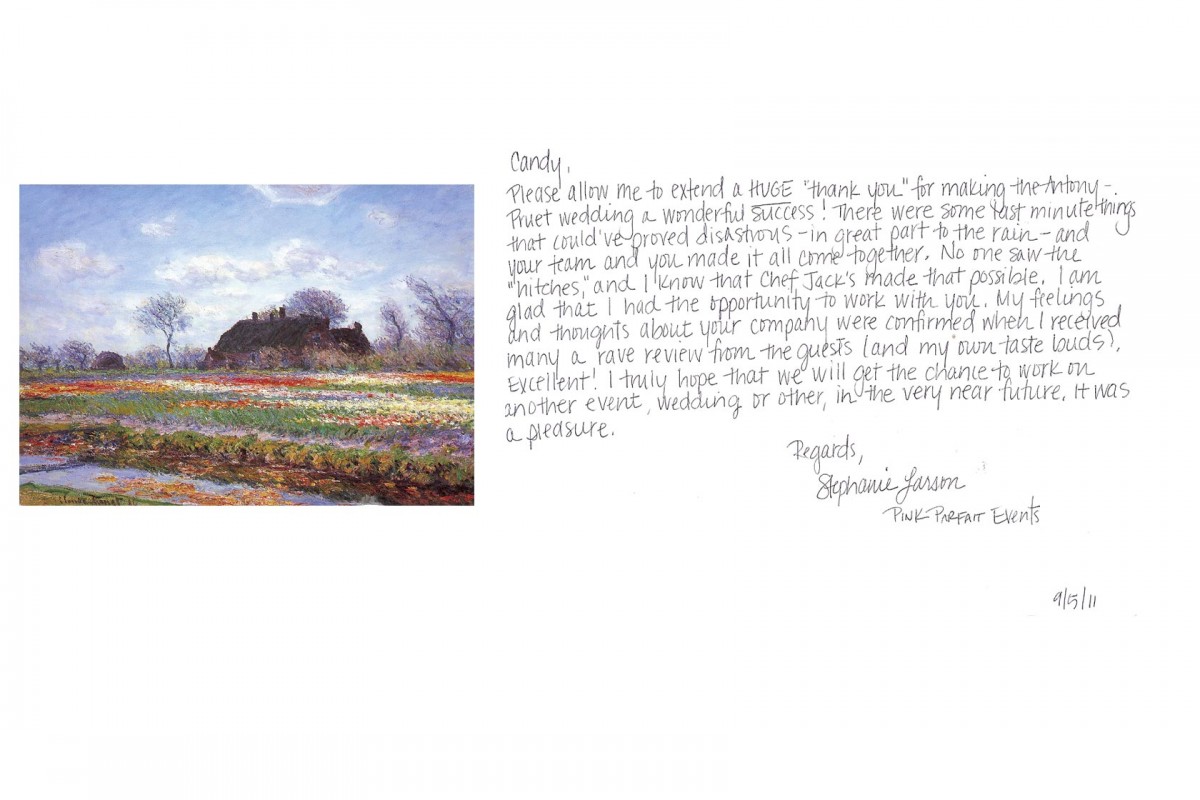 Claude Monet
Candy,
Please allow me to extend a HUGE "thank you" for making the Antony-
Pruet wedding a wonderful success! There were some last minute things
that could've proved disastrous - in great part to the rain - and
your team and you made it all come together. No one saw the
"hitches," and I know that Chef Jack's made that possible. I am
glad that I had the opportunity to work with you. My feelings
and thoughts about your company were confirmed when I received
many a rave review from the guests (and my own taste buds).
Excellent! I truly hope that we will get the chance to work on
another event, wedding or other, in the very near future. It was
a pleasure.
Regards,
Stephanie Larson
Pink Parfait Events
9/5/11